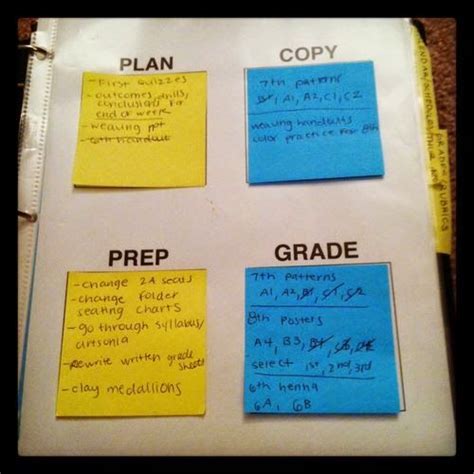 PLAN
- First Quizzes
- outcomes, drills,
conclusions for
end of week
- weaving ppt
- 6th Handout
COPY
7th patterns
B1, A1, A2, C1, C2
weaving handouts
color practice for 8th
PREP
- change 2A seats
- change folder
seating charts
- go through syllabus/
artsonia
- Rewrite written grade
sheets
- clay medallions
GRADE
7th patterns
A1, A2, B1, C1, C2
8th Posters
A4, B3,
select 1st, 2nd, 3rd
6th henna
6A, 6B
GRADES/RUBRICS